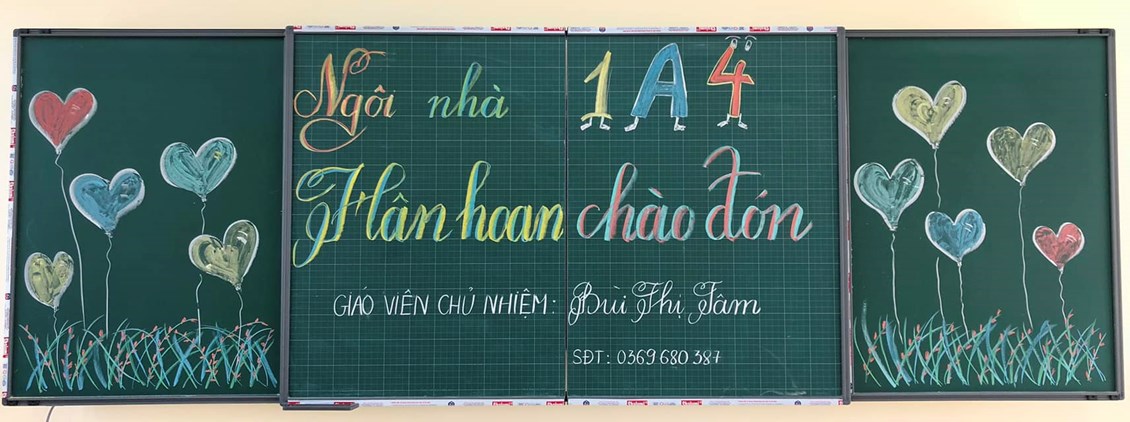 Ngôi nhà 1A4
Hân hoan chào đón
GIÁO VIÊN CHỦ NHIỆM: Bùi Thị Tâm
SĐT: 0369 680 387